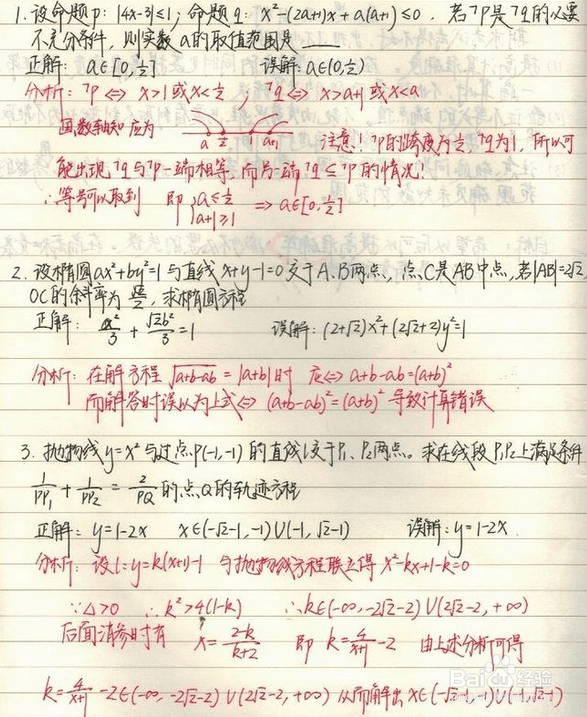 1. 设命题p: |4x-3|≤1; 命题q: x²-(2a+1)x+a(a+1)≤0. 若¬p是¬q的必要
不充分条件, 则实数a的取值范围是 ____
正解: a∈[0,½] 误解: a∈(0,½)
分析: ¬p ⇔ x>1或x<½, ¬q ⇔ x>a+1或x<a
由数轴知 应为 a ½ 1 a+1 注意! ¬p的跨度为½, ¬q为1, 所以可
能出现¬q与¬p一端相等, 而另一端¬q≤¬p的情况!
∴等号可以取到 即 {a≤½ a+1≥1 ⇒ a∈[0,½]
2. 设椭圆ax²+by²=1与直线x+y-1=0交于A、B两点, 点C是AB中点, 若|AB|=2√2,
OC的斜率为 √2/2, 求椭圆方程
正解: x²/3 + √2y²/3 =1 误解: (2+√2)x²+(2√2+2)y²=1
分析: 在解方程 √(a+b-ab) = |a+b| 时 应⇔ a+b-ab=(a+b)²
而解答时误以为上式⇔ (a+b-ab)²=(a+b)² 导致计算错误
3. 抛物线y=x²与过点P(-1,-1)的直线l交于P₁、P₂两点。求在线段P₁P₂上满足条件
1/PP₁ + 1/PP₂ = 2/PQ 的点Q的轨迹方程
正解: y=1-2x x∈(-√2-1,-1)∪(-1,√2-1) 误解: y=1-2x.
分析: 设l: y=k(x+1)-1 与抛物线方程联立得 x²-kx+1-k=0
∵△>0 ∴k²>4(1-k) ∴k∈(-∞,-2√2-2)∪(2√2-2,+∞)
后面消参时有 x=(2-k)/(k+2) 即 k=4/(x+1)-2 由上述分析可得
k=4/(x+1)-2∈(-∞,-2√2-2)∪(2√2-2,+∞) 从而解出x∈(-√2-1,-1)∪(-1,√2-1)
Baidu经验